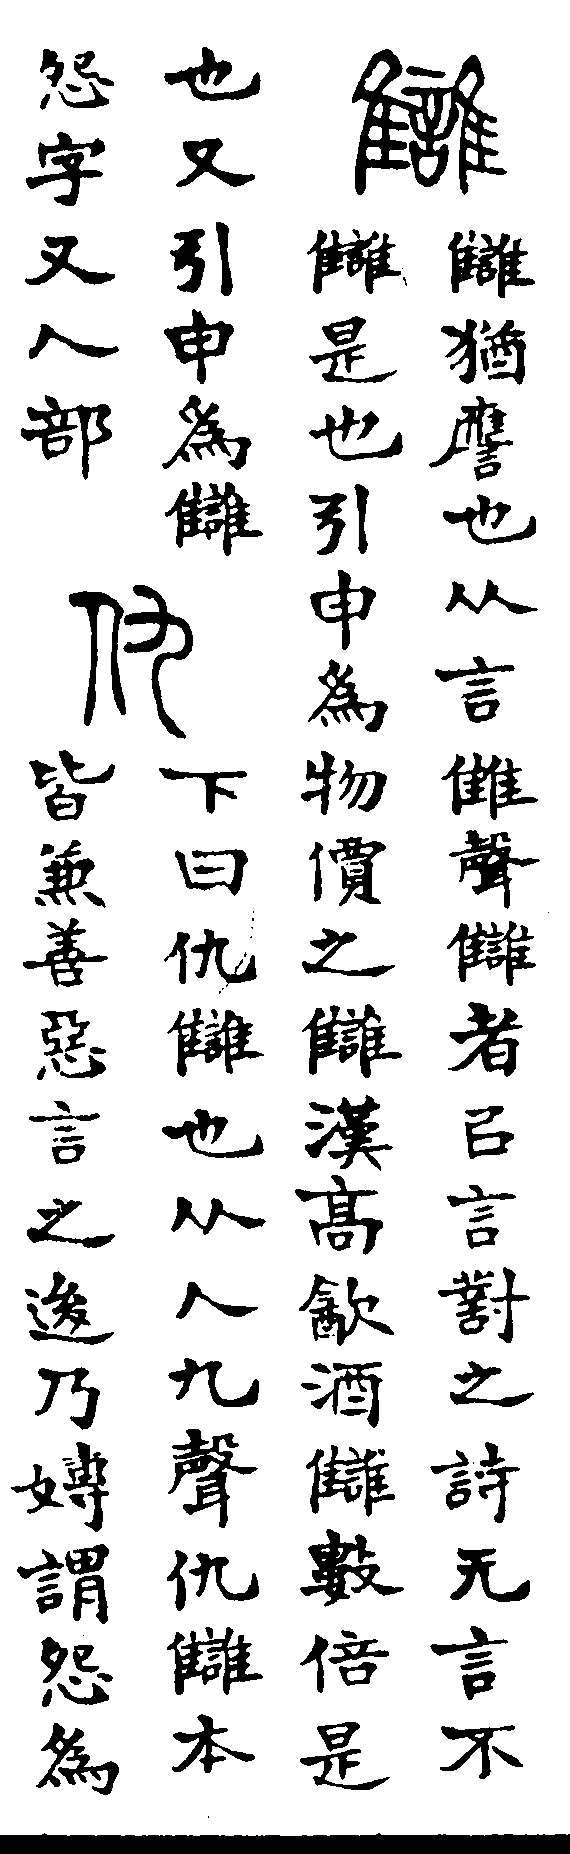 讎
讎猶譍也从言雔聲讎者㠯言對之詩无言不
讎是也引申爲物價之讎漢髙㱃酒讎數倍是
也又引申爲讎
怨字又人部
仇
下曰仇讎也从人九聲仇讎本
皆兼善惡言之𨒥乃嫥謂怨爲